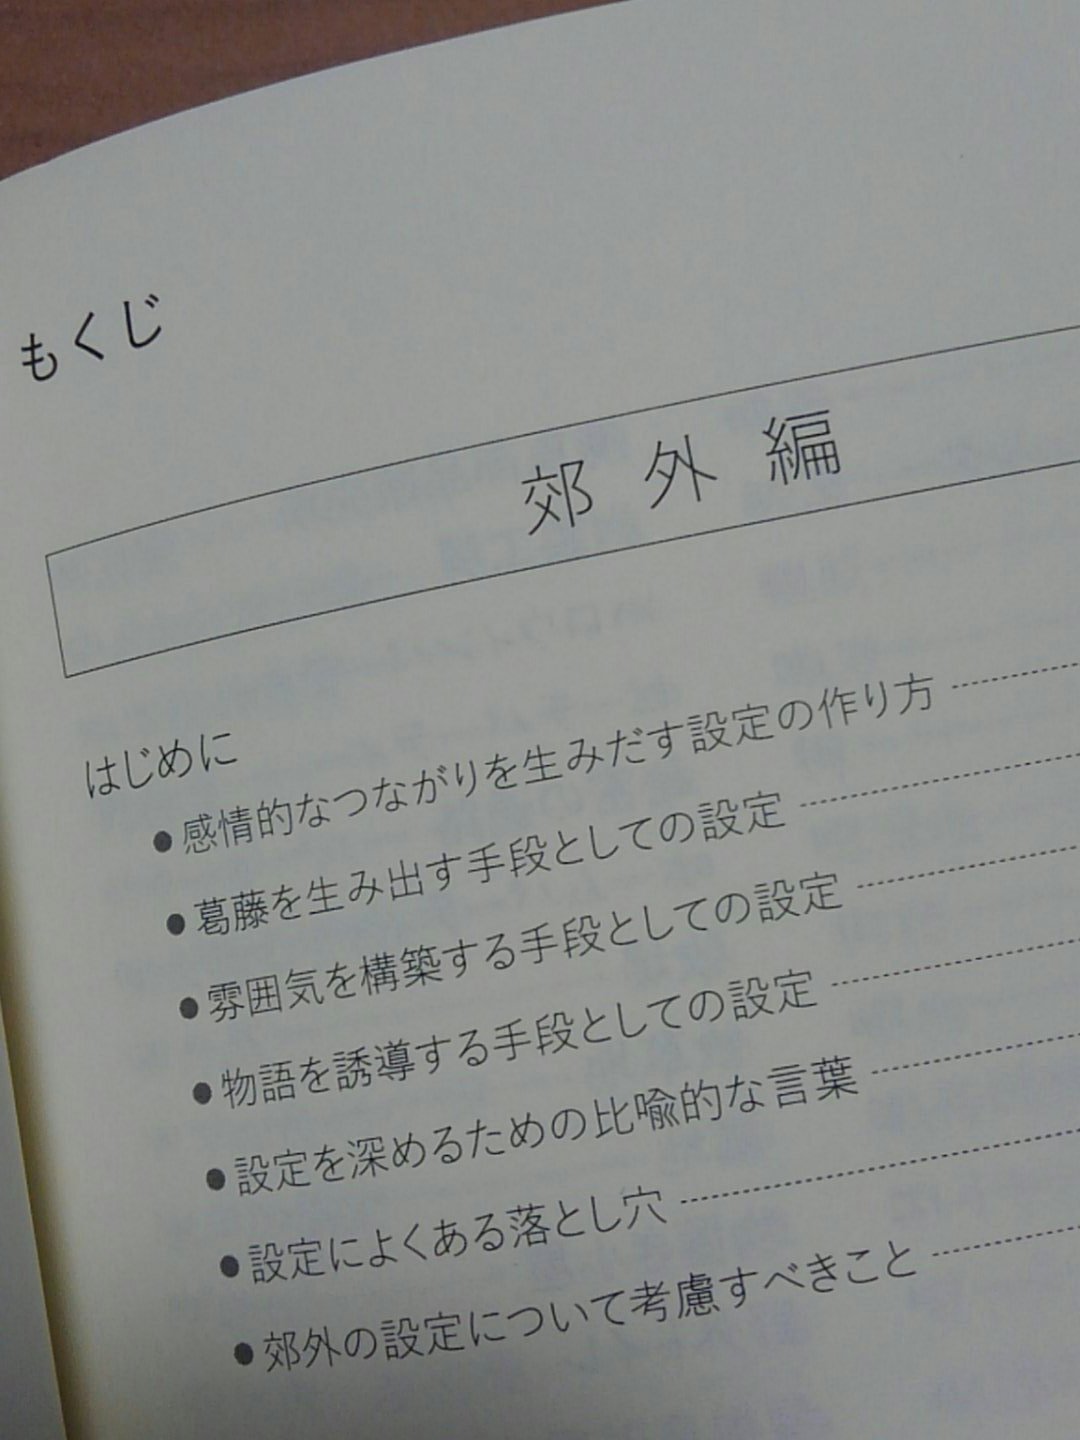 もくじ
郊外編
はじめに
●感情的なつながりを生みだす設定の作り方
●葛藤を生み出す手段としての設定
●雰囲気を構築する手段としての設定
●物語を誘導する手段としての設定
●設定を深めるための比喩的な言葉
●設定によくある落とし穴
●郊外の設定について考慮すべきこと